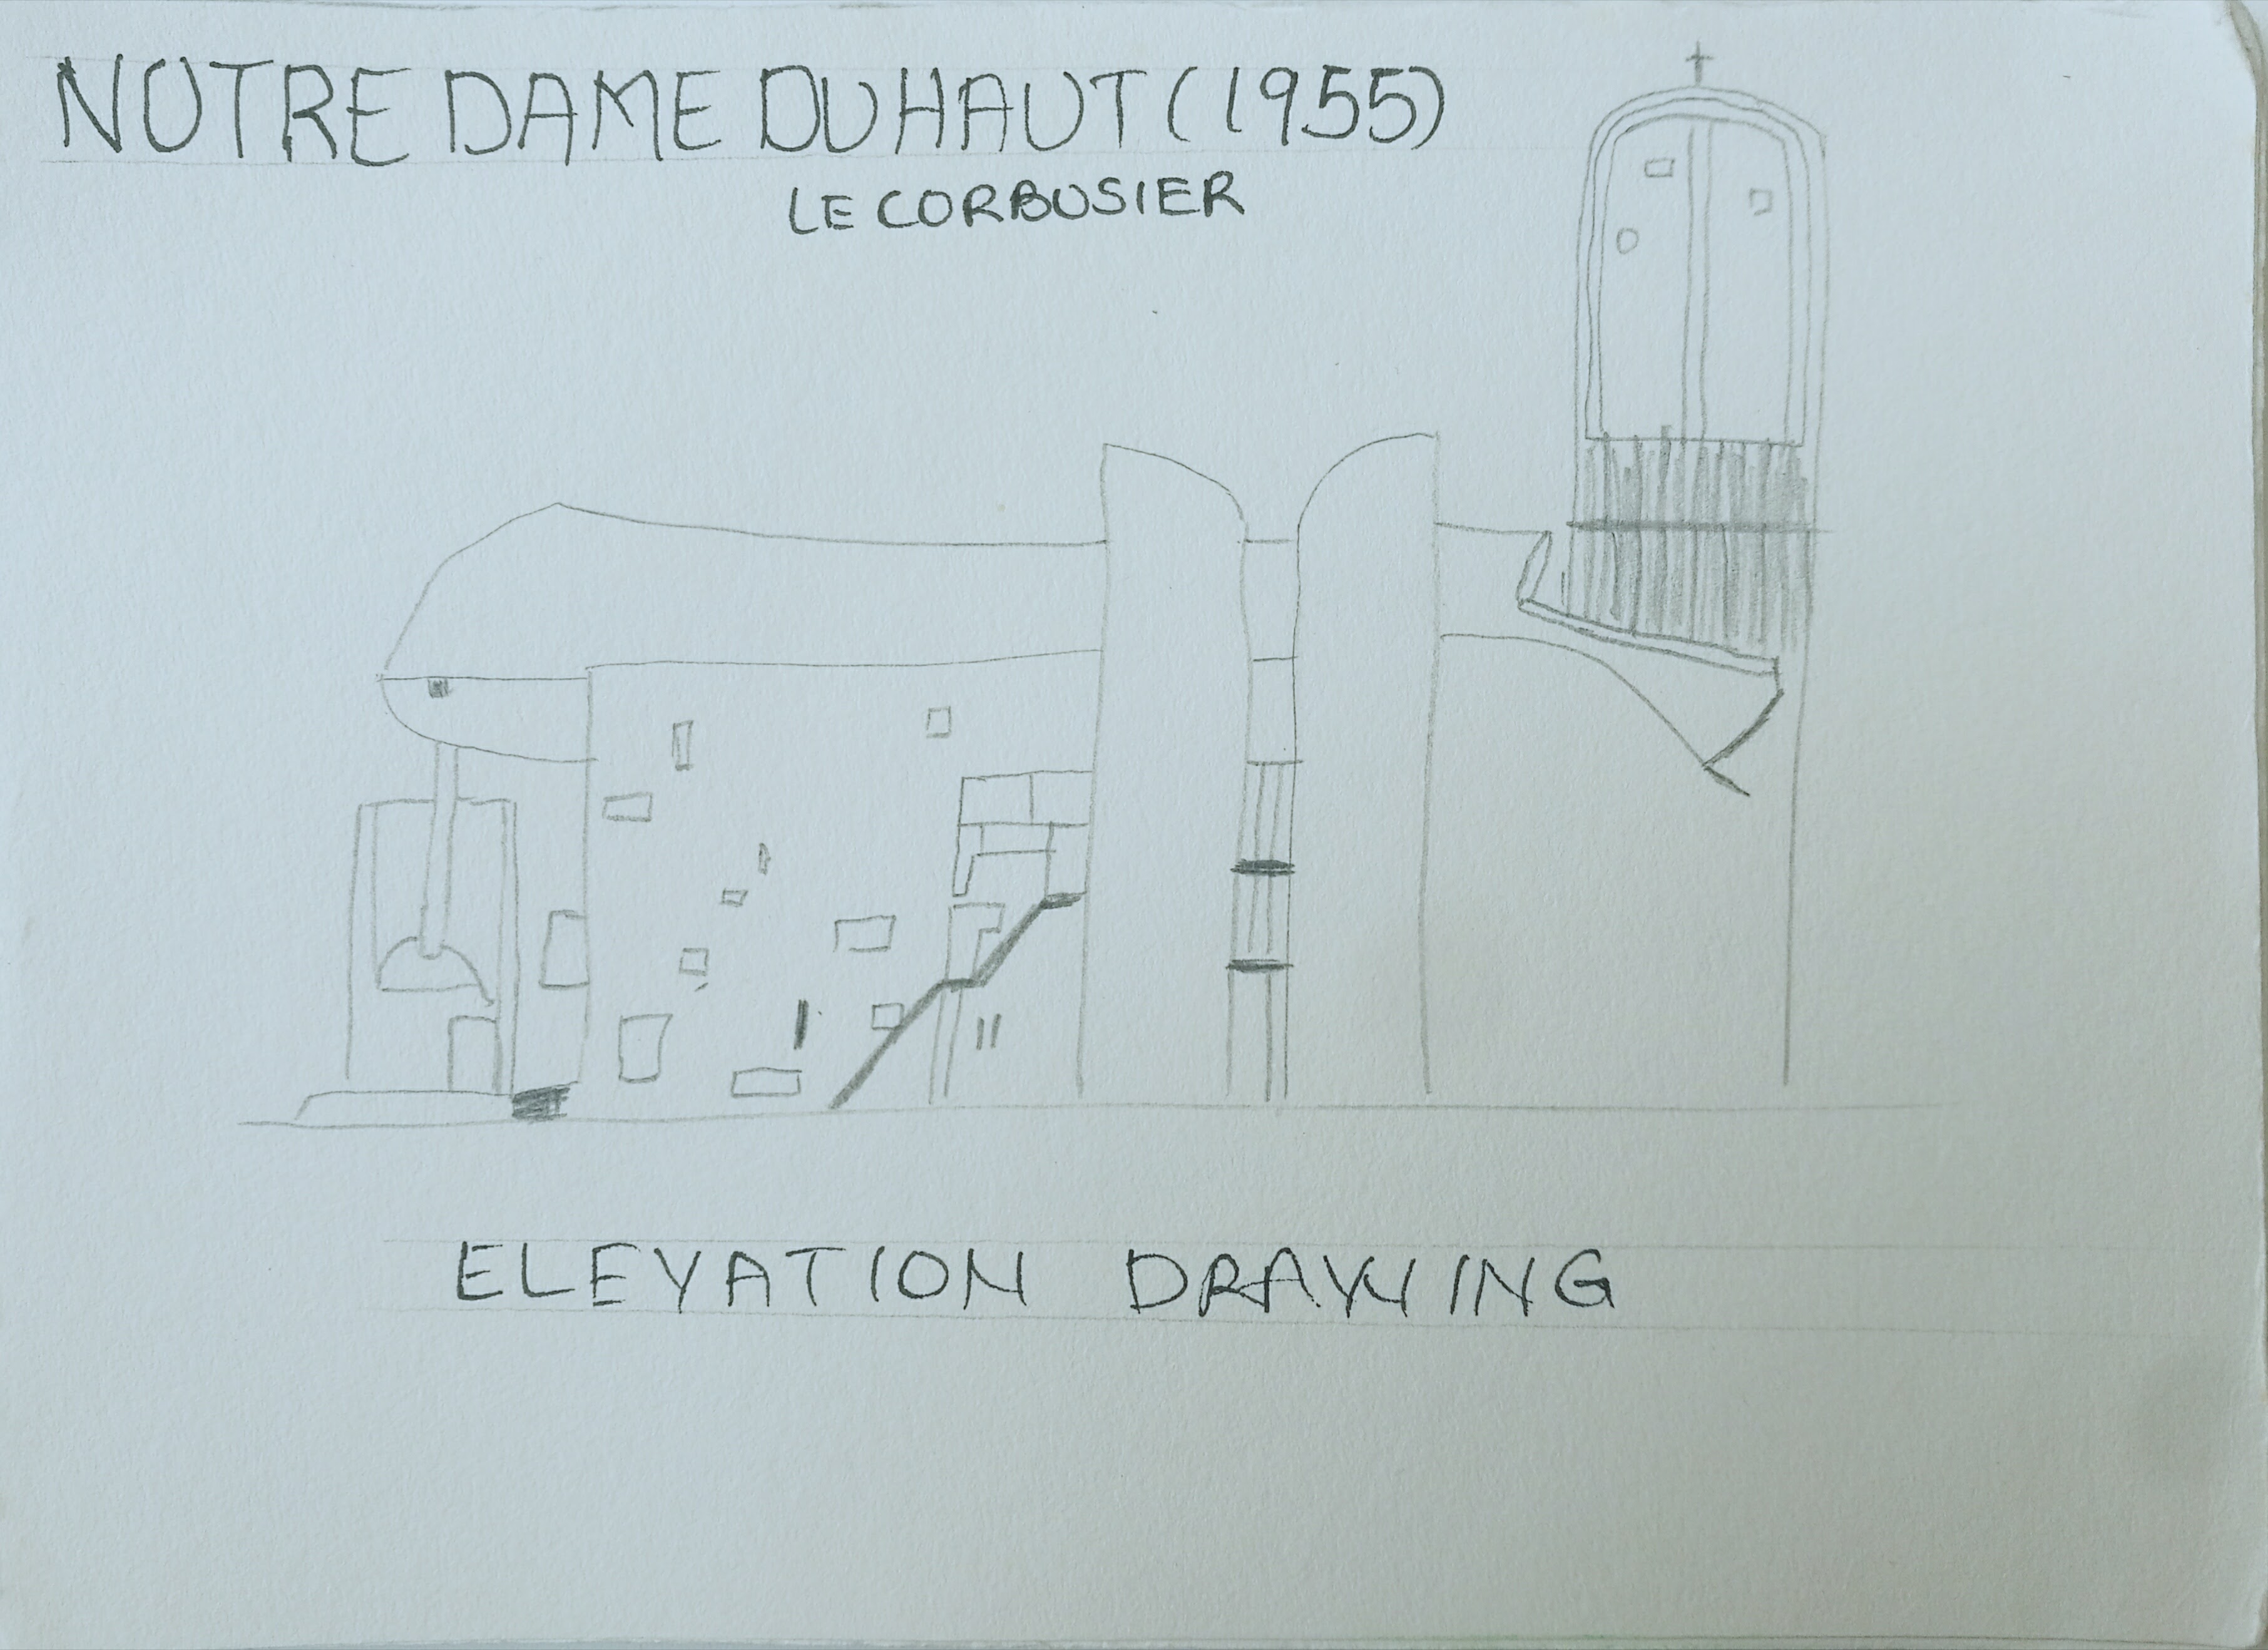 NOTRE DAME DU HAUT (1955)
LE CORBUSIER
ELEVATION DRAWING